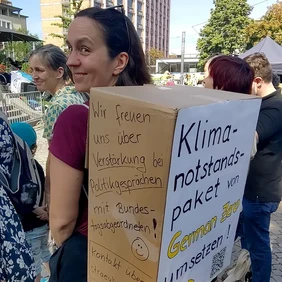 Wir freuen
uns über
Verstärkung bei
Politikgesprächen
mit Bundes-
tagsabgeordneten!
Kontakt über
Klima-
notstands-
paket von
German Zero
umsetzen!